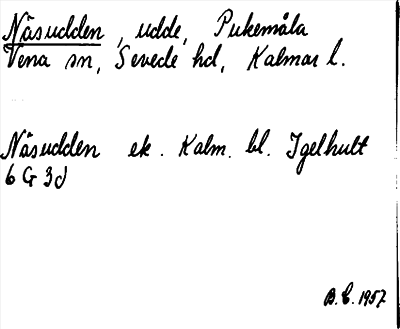 Näsudden, udde, Pukemåla
Vena sn, Sevede hd, Kalmar l.
Näsudden ek. Kalm. bl. Igelhult
6 G 3d
B.E. 1957